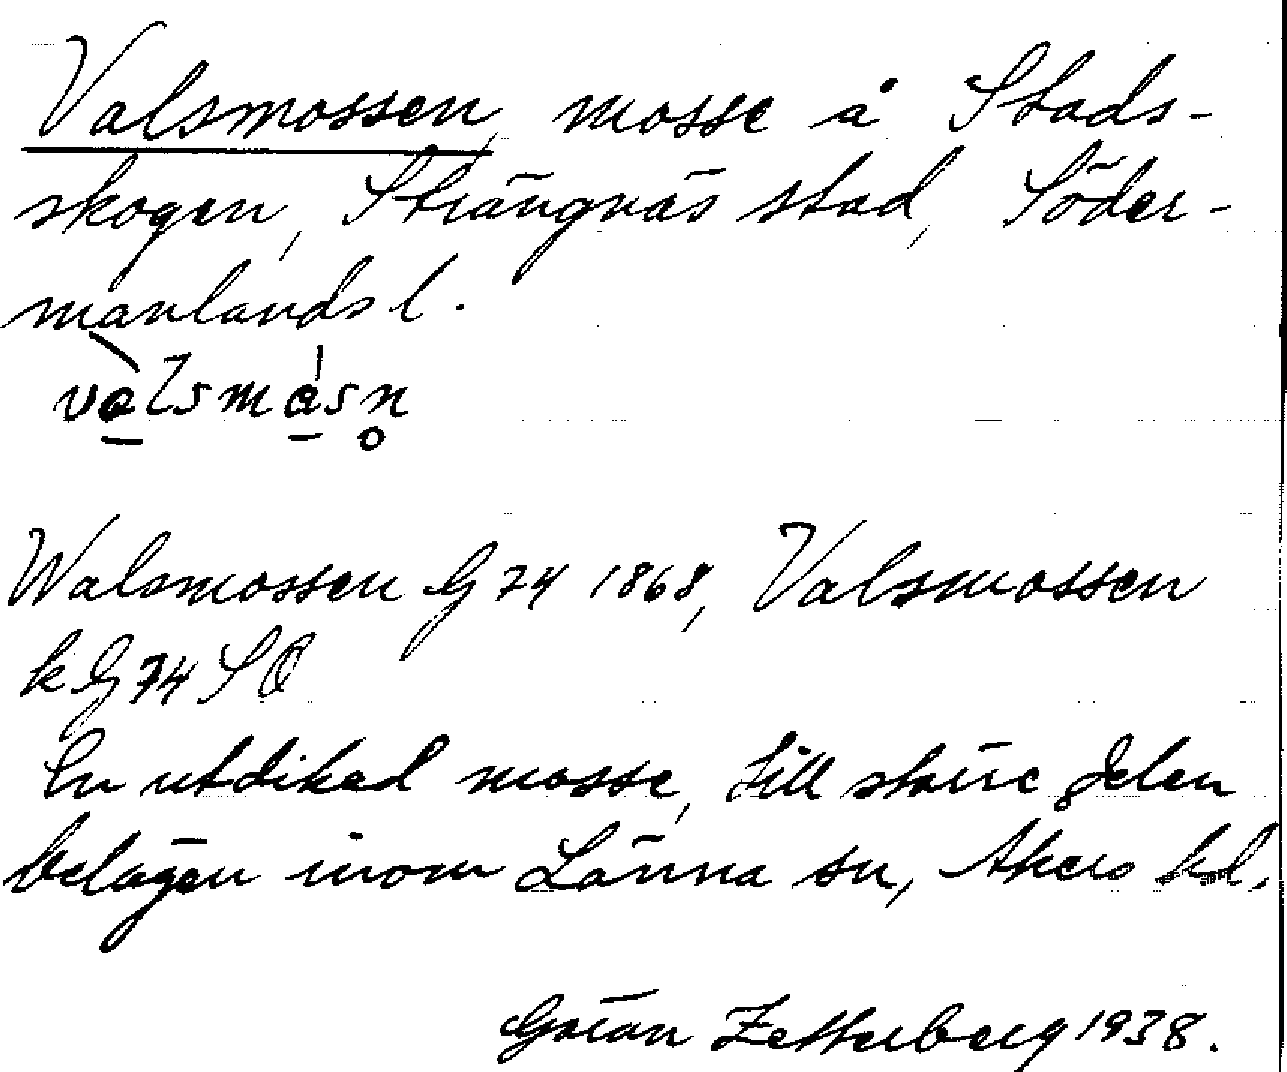 Valsmossen, mosse å Stads-
skogen, Strängnäs stad, Söder-
manlands l.
vàlsmåsn̥
Walsmossen G 74 1868, Valsmossen
k G 74 SO
En utdikad mosse, till större delen
belägen inom Länna sn, Åkers hd.
Göran Zetterberg 1938.